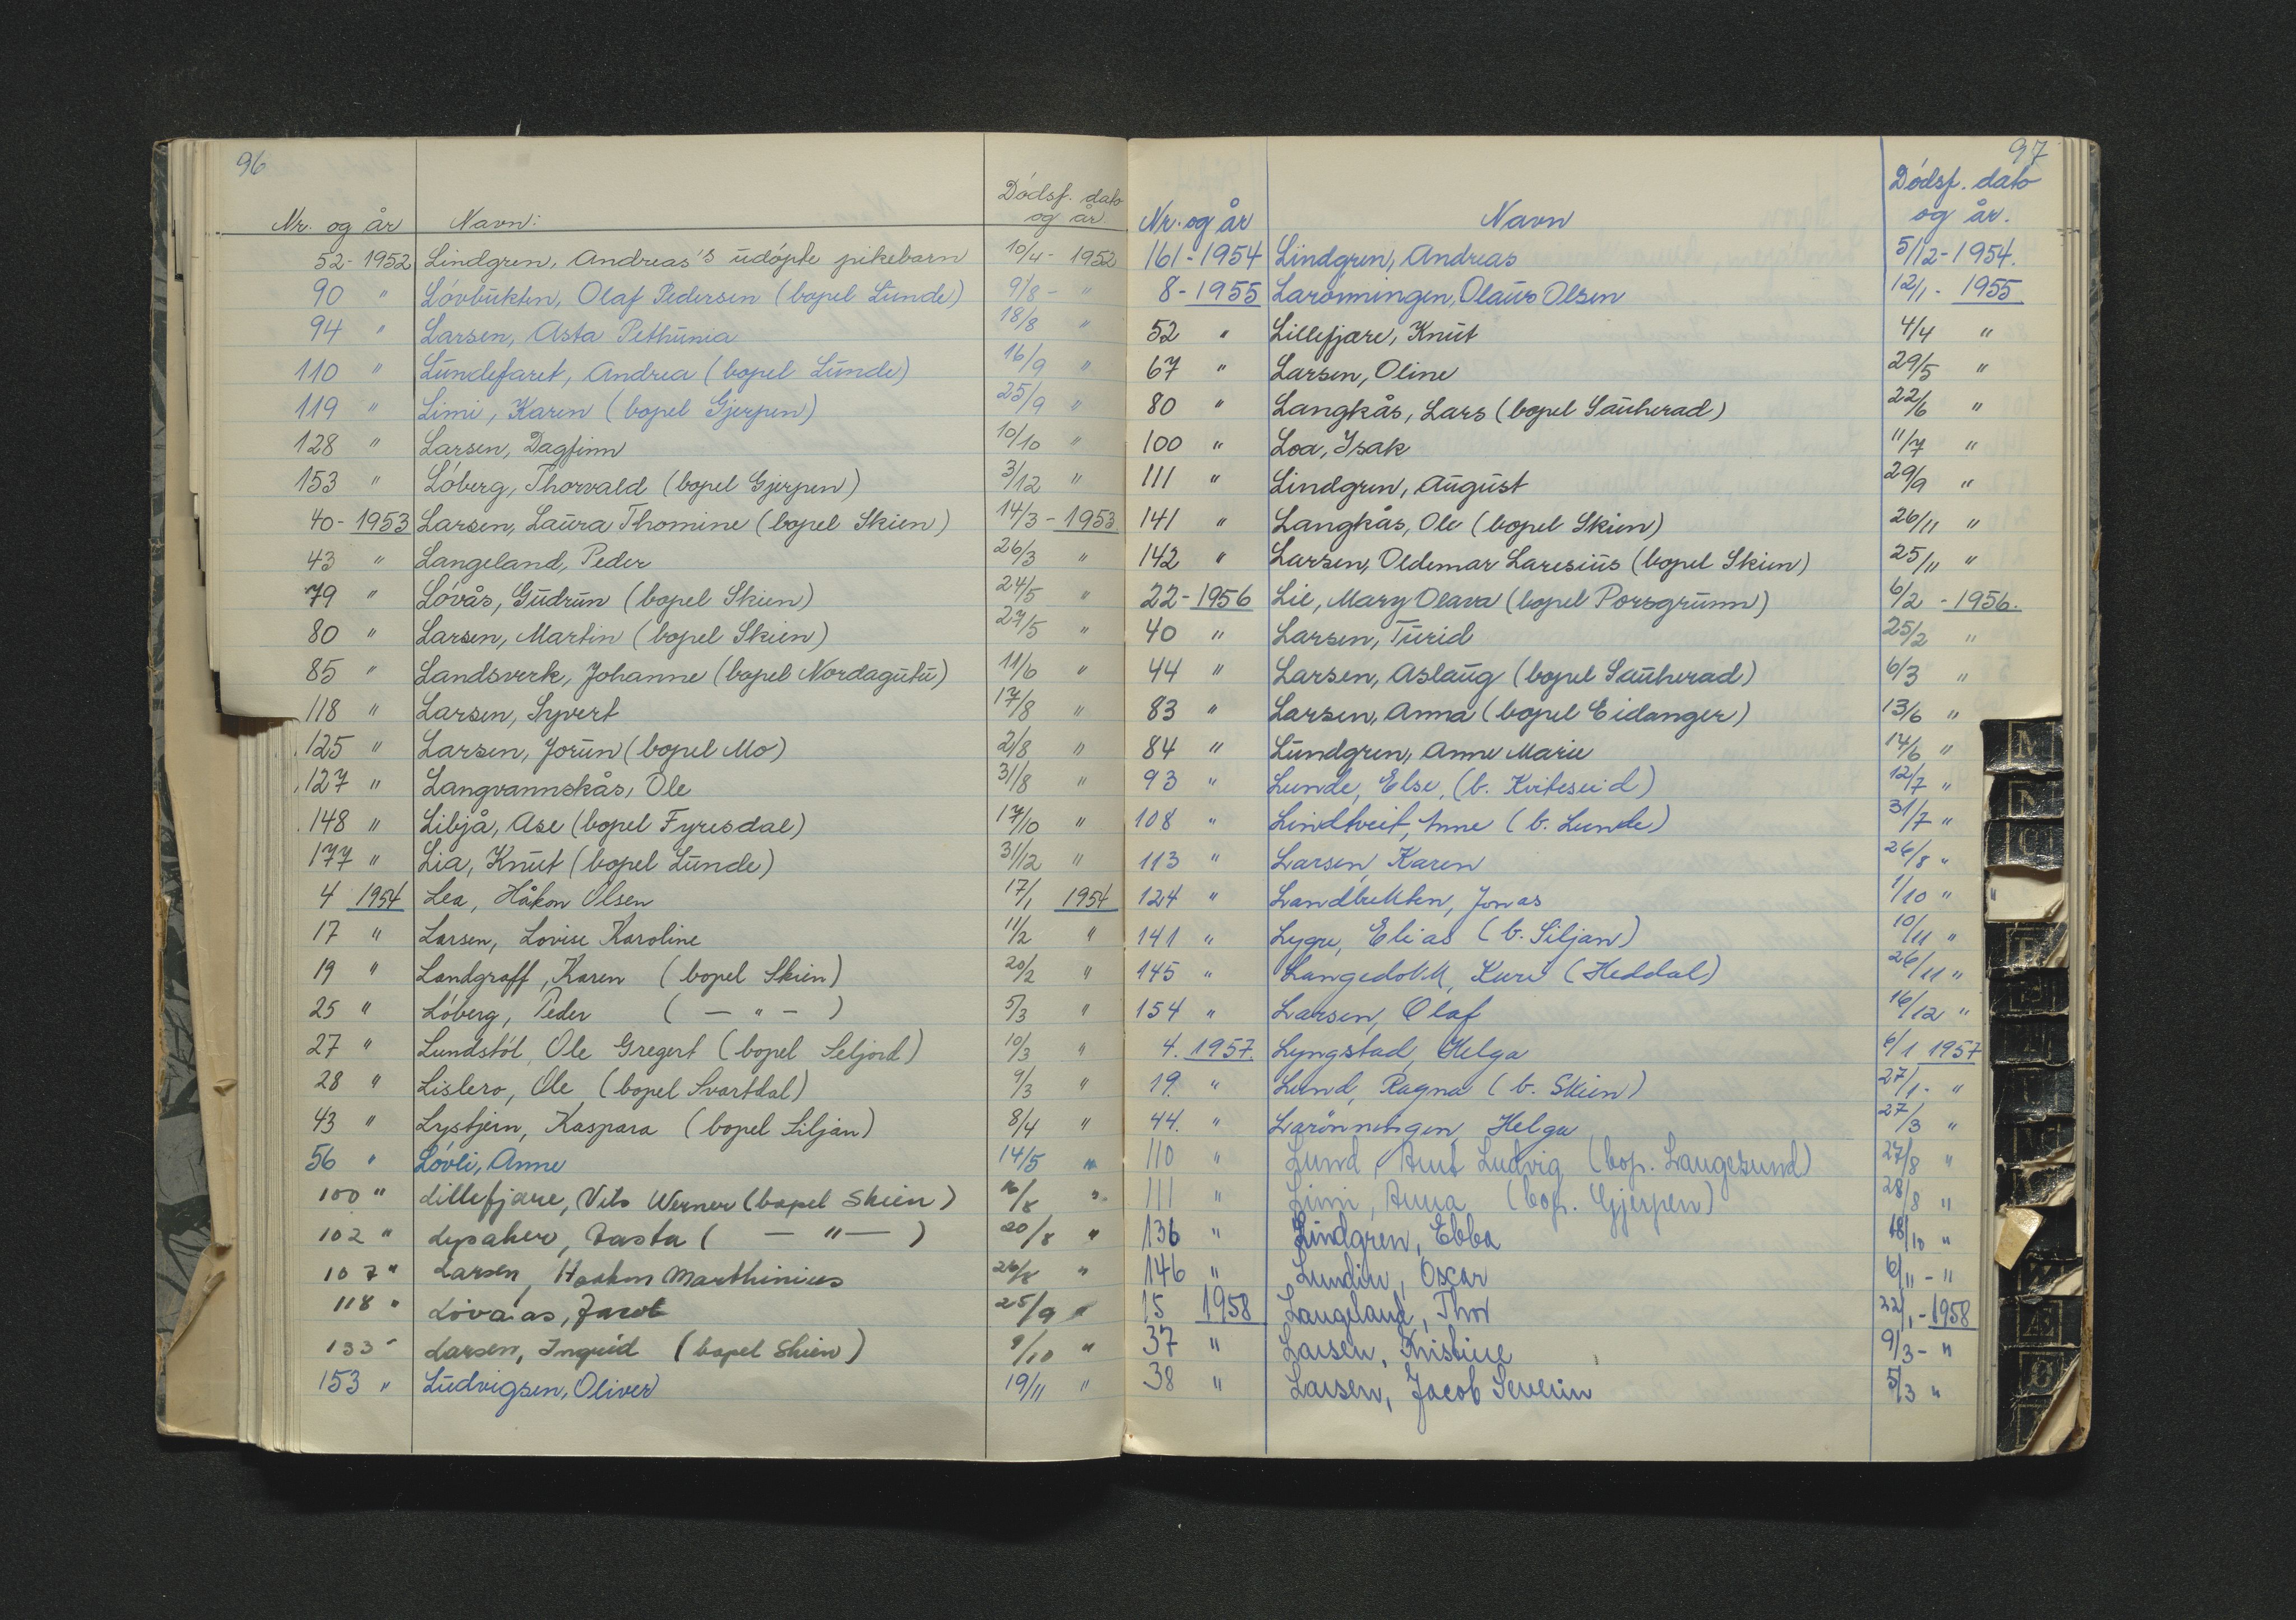 96
Nr. og år Navn: Dødsf. dato og år.
52 - 1952 Lindgren, Andreas's udøpte pikebarn 10/4 - 1952
90 " Løvbukten, Olaf Pedersen (bopel Lunde) 9/8 - "
94 " Larsen, Asta Pethunia 18/8 "
110 " Lundefaret, Andrea (bopel Lunde) 16/9 "
119 " Limi, Karen (bopel Gjerpen) 25/9 "
128 " Larsen, Dagfinn 10/10 "
153 " Løberg, Thorvald (bopel Gjerpen) 3/12 "
40 - 1953 Larsen, Laura Thomine (bopel Skien) 14/3 - 1953
43 " Langeland, Peder 26/3 "
79 " Løvås, Gudrun (bopel Skien) 24/5 "
80 " Larsen, Martin (bopel Skien) 27/5 "
85 " Landsverk, Johanne (bopel Nordagutu) 11/6 "
118 " Larsen, Syvert 17/8 "
125 " Larsen, Jorun (bopel Mo) 2/8 "
127 " Langvannskås, Ole 31/8 "
148 " Libjå, Ase (bopel Fyresdal) 17/10 "
177 " Lia, Knut (bopel Lunde) 31/12 "
4 1954 Lea, Håkon Olsen 17/1 1954
17 " Larsen, Lovise Karoline 11/2 "
19 " Landgraff, Karen (bopel Skien) 20/2 "
25 " Løberg, Peder ( — " — ) 5/3 "
27 " Lundstøl, Ole Gregert (bopel Seljord) 10/3 "
28 " Lislero, Ole (bopel Svartdal) 9/3 "
43 " Lystjern, Kaspara (bopel Siljan) 8/4 "
56 " Løvli, Anne 14/5 "
100 " Lillefjære, Nils Werner (bopel Skien) 16/8 "
102 " Lysaker, Aasta ( — " — ) 20/8 "
107 " Larsen, Haakon Marthinius 26/8 "
118 " Løvaas, Jacob 25/9 "
133 " Larsen, Ingrid (bopel Skien) 9/10 "
153 " Ludvigsen, Oliver 19/11 "
97
Nr. og år Navn Dødsf. dato og år.
161 - 1954 Lindgren, Andreas 5/12 - 1954.
8 - 1955 Larønningen, Olaus Olsen 12/1 - 1955
52 " Lillefjære, Knut 4/4 "
67 " Larsen, Oline 29/5 "
80 " Langkås, Lars (bopel Sauherad) 22/6 "
100 " Loa, Isak 11/7 "
111 " Lindgren, August 29/9 "
141 " Langkås, Ole (bopel Skien) 26/11 "
142 " Larsen, Oldemar Laresius (bopel Skien) 25/11 "
22 - 1956 Lie, Mary Olava (bopel Porsgrunn) 6/2 - 1956.
40 " Larsen, Turid 25/2 "
44 " Larsen, Aslaug (bopel Sauherad) 6/3 "
83 " Larsen, Anna (bopel Eidanger) 13/6 "
84 " Lundgren, Anne Marie 14/6 "
93 " Lunde, Else, (b. Kviteseid) 12/7 "
108 " Lindtveit, Anne (b. Lunde) 31/7 "
113 " Larsen, Karen 26/8 "
124 " Landbukten, Jonas 1/10 "
141 " Lygre, Elias (b. Siljan) 10/11 "
145 " Langedokk, Kari (Heddal) 26/11 "
154 " Larsen, Olaf 16/12 "
4. 1957. Lyngstad, Helga 6/1 1957
19. " Lund, Ragna (b. Skien) 27/1 - "
44. " Larønningen, Helge 27/3 "
110 " Lund, Amt Ludvig (bop. Langesund) 27/8 "
111 " Limi, Anna (bop. Gjerpen) 28/8 "
136 " Lindgren, Ebba 18/10 "
146 " Lundin, Oscar 6/11 - "
15 1958 Langeland, Thor 22/1 - 1958
37 " Larsen, Kristine 9/3 - "
38 " Larsen, Jacob Severin 5/3 "
M
N
O
P
U
Æ
Ø